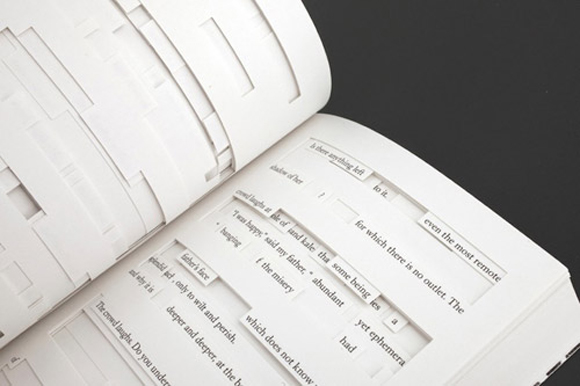 is there anything left
shadow of her to it.
even the most remote
! for which there is no outlet. The
crowd laughs at
"I was happy," said my father, "abundant
hanging
and kale: some being
f the misery yet ephemera
a
father's face
had
, only to wilt and perish.
which does not know
and why it is
deeper and deeper, at the b
The crowd laughs. Do you unders